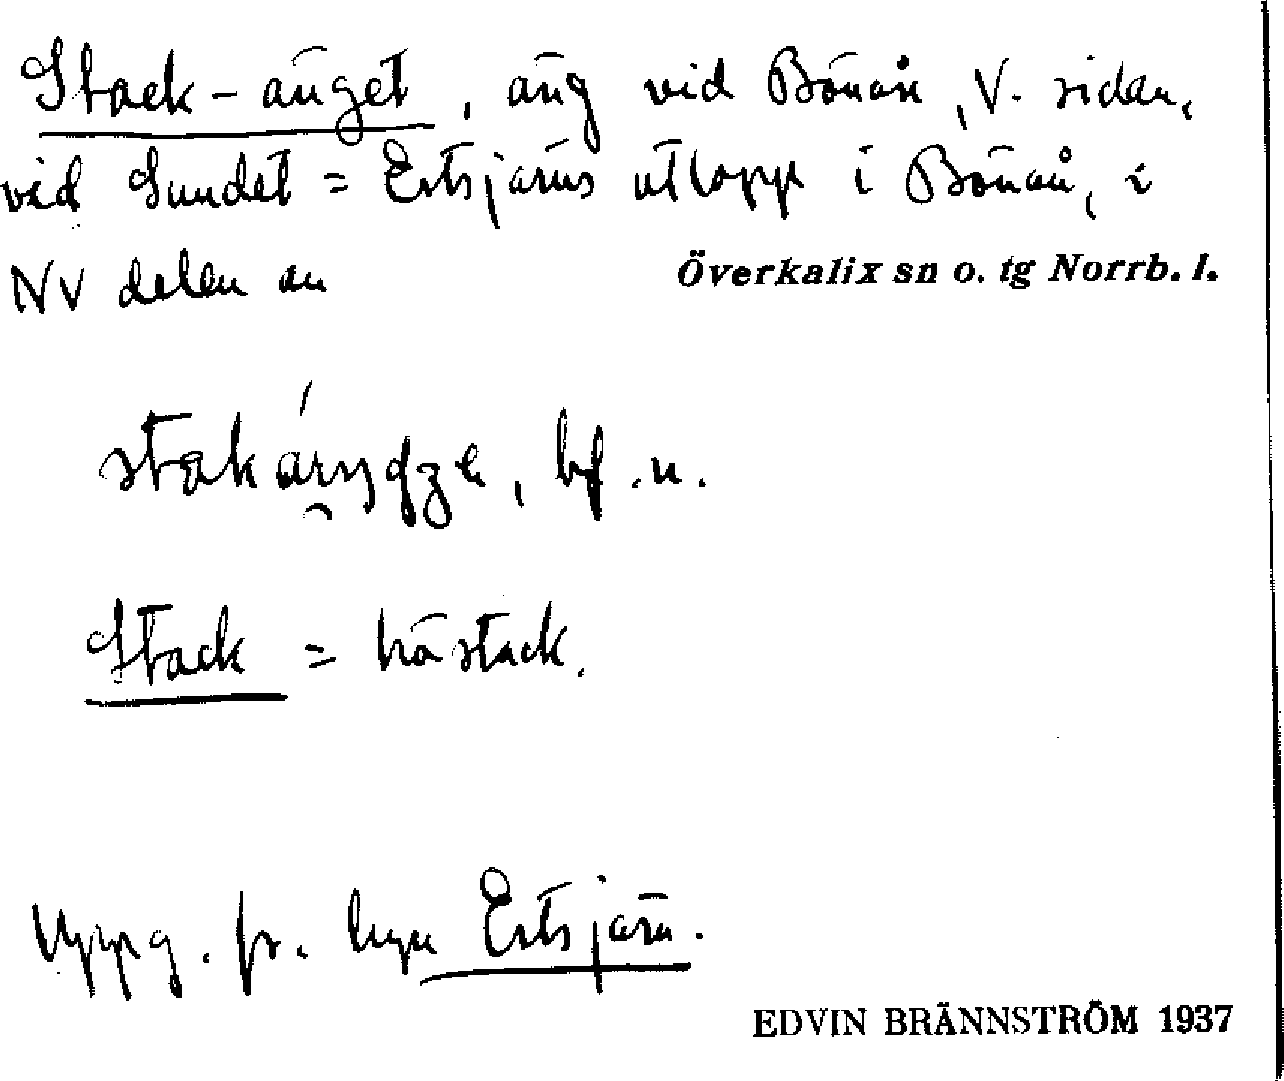 Stack-änget, äng vid Bönån, V. sidan,
vid Sundet = Ertsjärvs utlopp i Bönån, i
NV delen av Överkalix sn o. tg Norrb. l.
bf. n.
Stack = höstack.
Uppg. fr. byn Ertsjärv.
EDVIN BRÄNNSTRÖM 1937